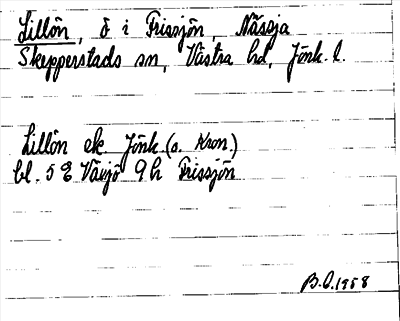 Lillön, ö i Frissjön, Nässja
Skepperstads sn, Västra hd, Jönk. l.
Lillön ek Jönk. (o. Kron.)
bl. 5 E Växjö 9 h Frissjön
B.O. 1958